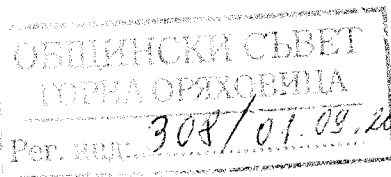 ОБЩИНСКИ СЪВЕТ
ГОРНА ОРЯХОВИЦА
Рег. инд.: 308/01.09.20